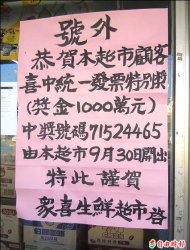 號外
恭賀本超市顧客
喜中統一發票特別獎
(獎金1000萬元)
中獎號碼71524465
由本超市9月30日開出
特此謹賀
家喜生鮮超市啟
自由時報